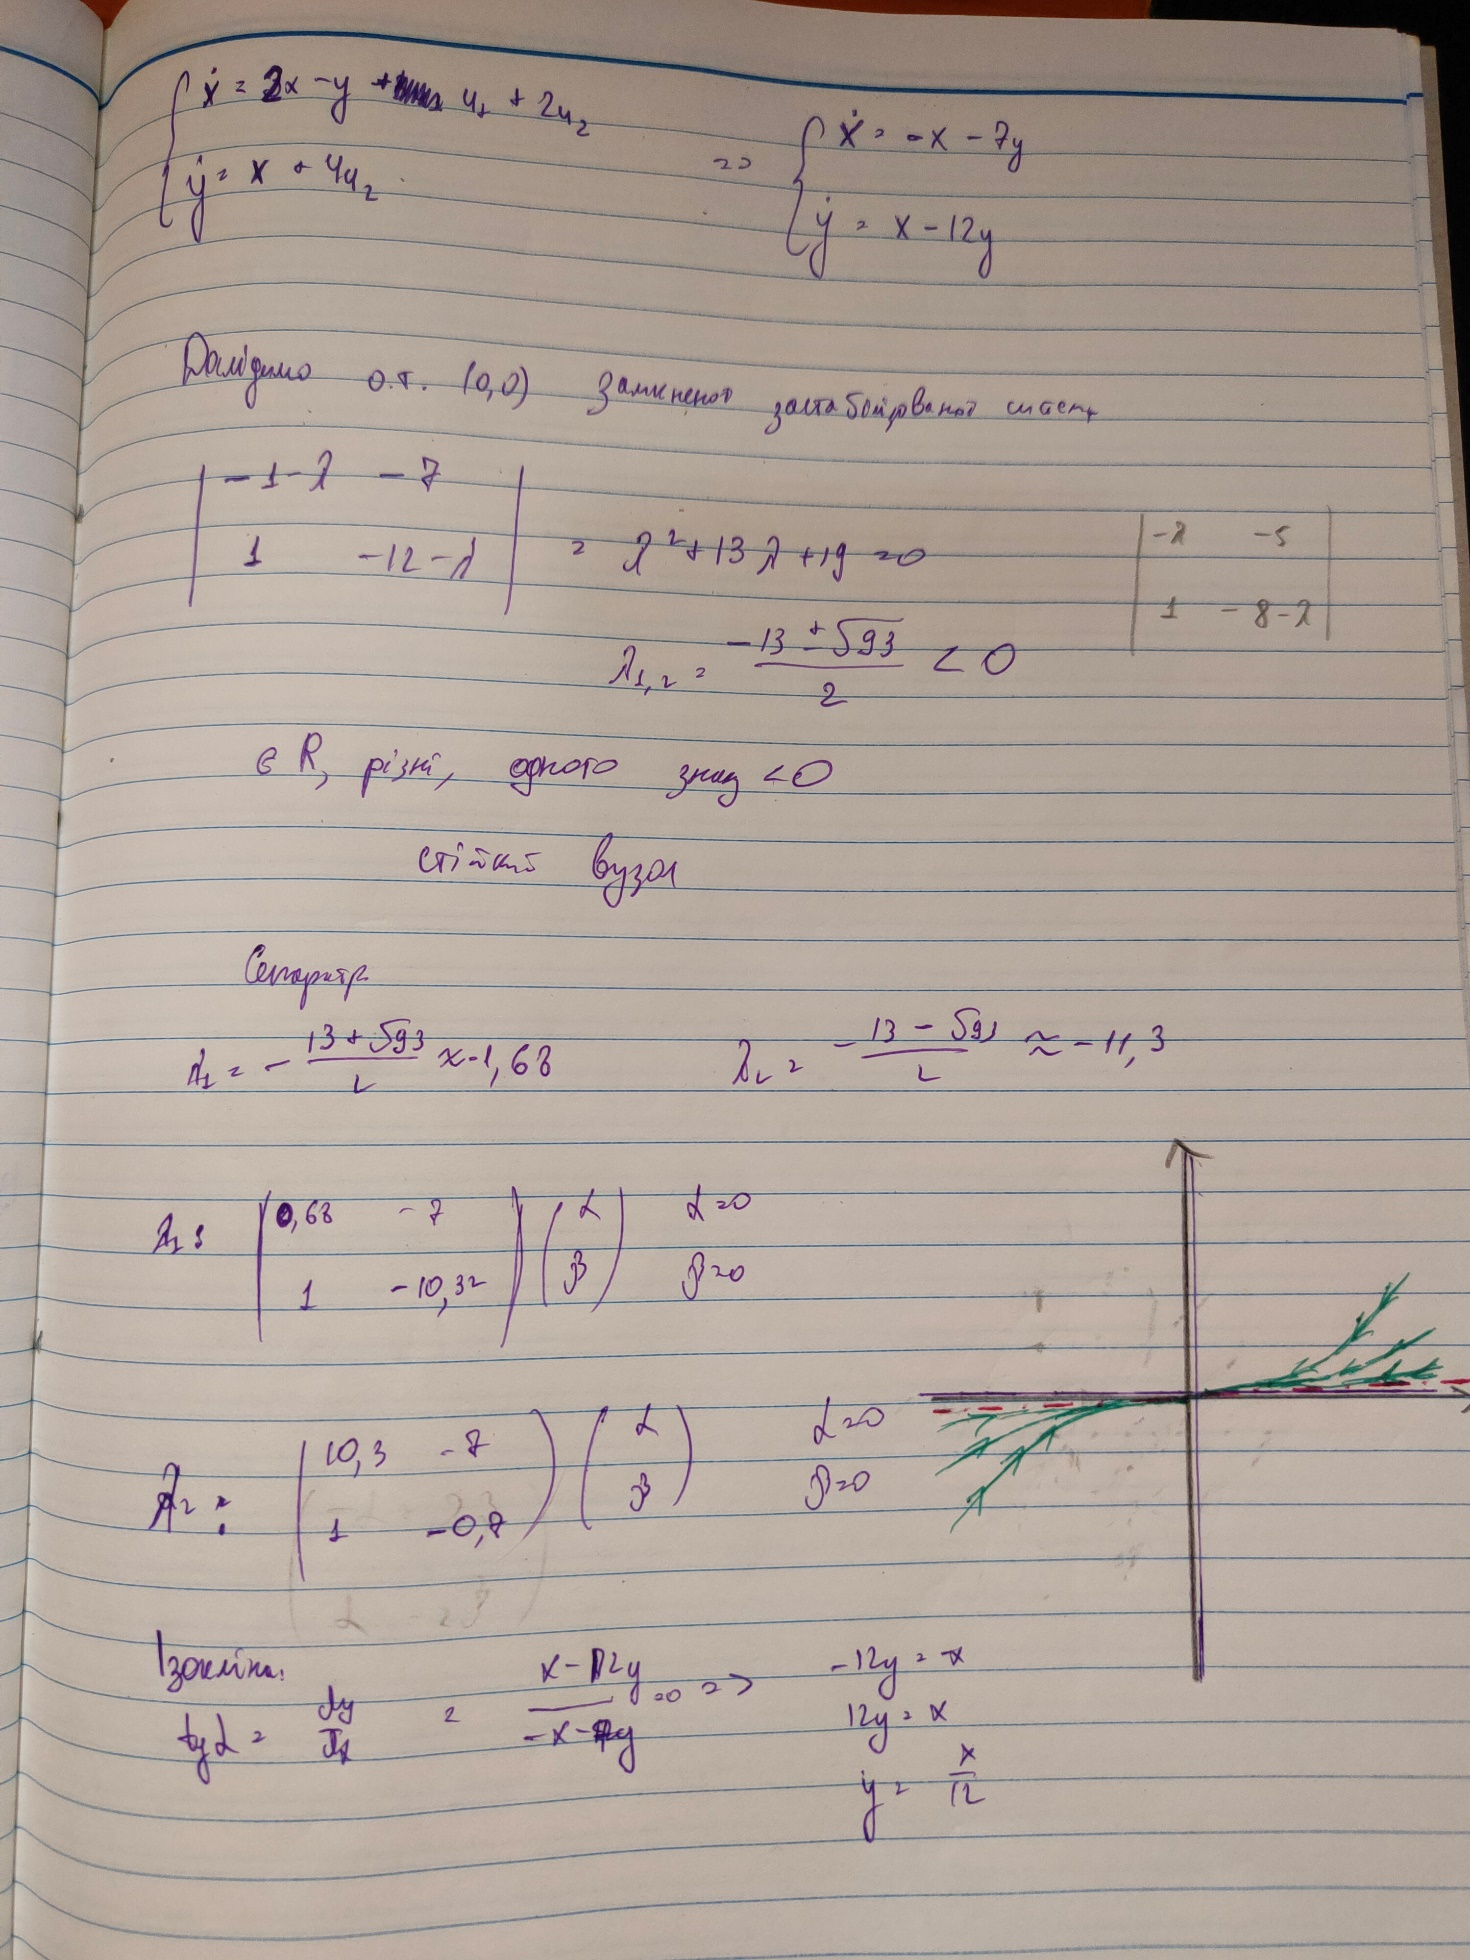 ẋ = 2x - y + u₁ + 2u₂
ẏ = x + 4u₂
=> ẋ = -x - 7y
ẏ = x - 12y
Дослідимо о.т. (0,0) замкненої застабілізованої систем
| -1-λ -7 |
| 1 -12-λ | = λ² + 13λ + 19 = 0
| -λ -5 |
| 1 -8-λ |
λ₁,₂ = (-13 ± √93)/2 < 0
∈ R, різні, одного знаку < 0
стійкий вузол
Сепаратр
λ₁ = - (13 + √93)/2 ≈ -1,68 λ₂ = - (13 - √93)/2 ≈ -11,3
λ₁: | 0,68 -7 | (α) α=0
| 1 -10,32 | (β) β=0
λ₂: | 10,3 -7 ) (α) α=0
| 1 -0,7 ) (β) β=0
Ізокліна:
tg α = dy/dx = (x - 12y)/(-x - 7y) = 0 => -12y = -x
12y = x
y = x/12